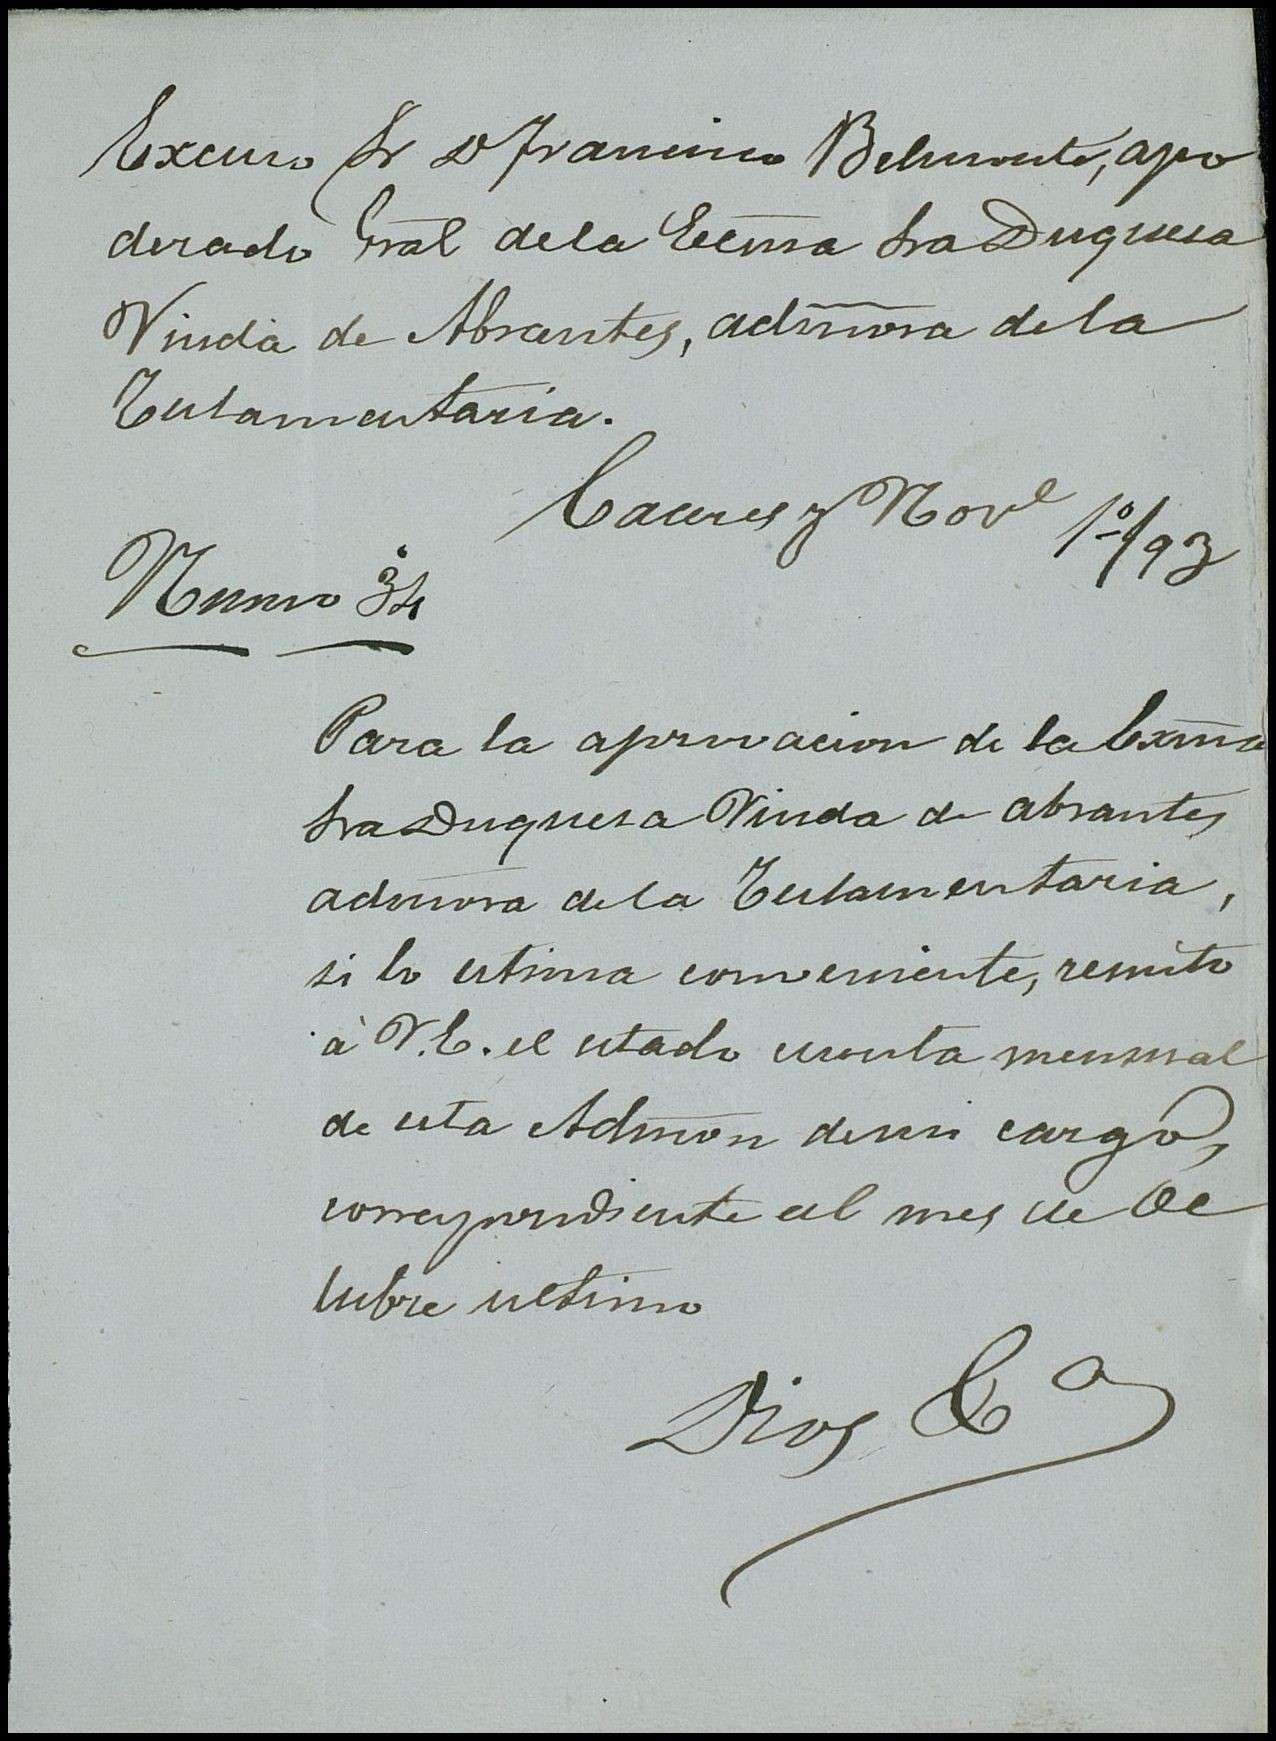 Excmo Sr D Francisco Belmonte, apo
derado Gral de la Ecma Sra Duquesa
Viuda de Abrantes, admora de la
Testamentaria.
Caceres y Nove 1º/93
Numero 34
Para la aprovacion de la Exma
Sra Duquesa Viuda de Abrantes
admora de la Testamentaria,
si lo estima conveniente, remito
á V.E. el estado cuenta mensual
de esta Admon de mi cargo,
correspondiente al mes de Oc
tubre ultimo
Dios &a